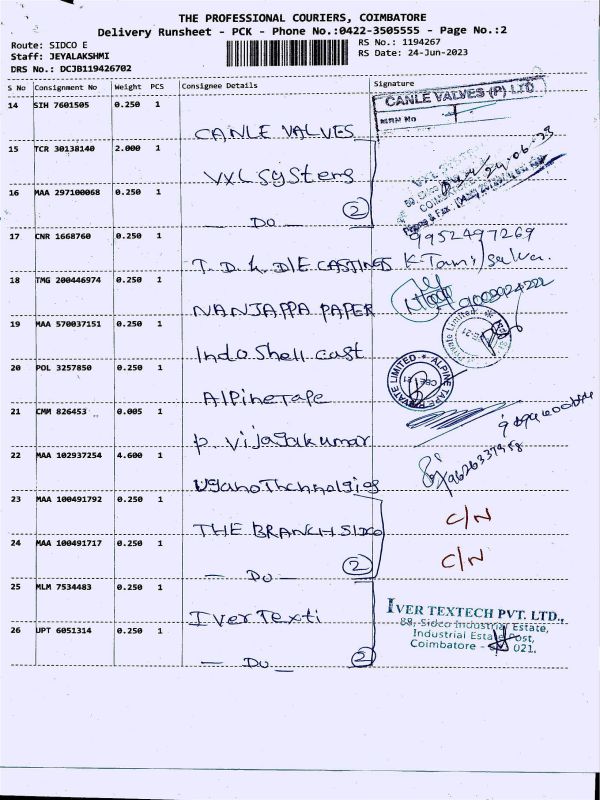 THE PROFESSIONAL COURIERS, COIMBATORE
Delivery Runsheet - PCK - Phone No.:0422-3505555 - Page No.:2
Route: SIDCO E
Staff: JEYALAKSHMI
DRS No.: DCJB119426702
RS No.: 1194267
RS Date: 24-Jun-2023
S No Consignment No Weight PCS Consignee Details Signature
14 SIH 7601505 0.250 1
CANLE VALVES
CANLE VALVES (P) LTD
MRN No
15 TCR 30138140 2.000 1
VXL Systems
24-06-23
16 MAA 297100068 0.250 1
— Do — 2
17 CNR 1668760 0.250 1
T.D.K. DIE CASTINGS
9952497269
K.Tamilselvan.
18 TMG 200446974 0.250 1
NANJAPPA PAPER
19 MAA 570037151 0.250 1
Indo Shell cast
Private Limited
20 POL 3257850 0.250 1
AlPineTaPe
ALPINE TAPE PRIVATE LIMITED
21 CMM 826453 0.005 1
P. Vijayakumar
22 MAA 102937254 4.600 1
23 MAA 100491792 0.250 1
THE BRANCH SIDCO
C/N
24 MAA 100491717 0.250 1
— Do — 2
C/N
25 MLM 7534483 0.250 1
Iver Texti
IVER TEXTECH PVT. LTD.,
88, Sidco Industrial Estate,
Industrial Estate Post,
Coimbatore - 021.
26 UPT 6051314 0.250 1
— Do — 2